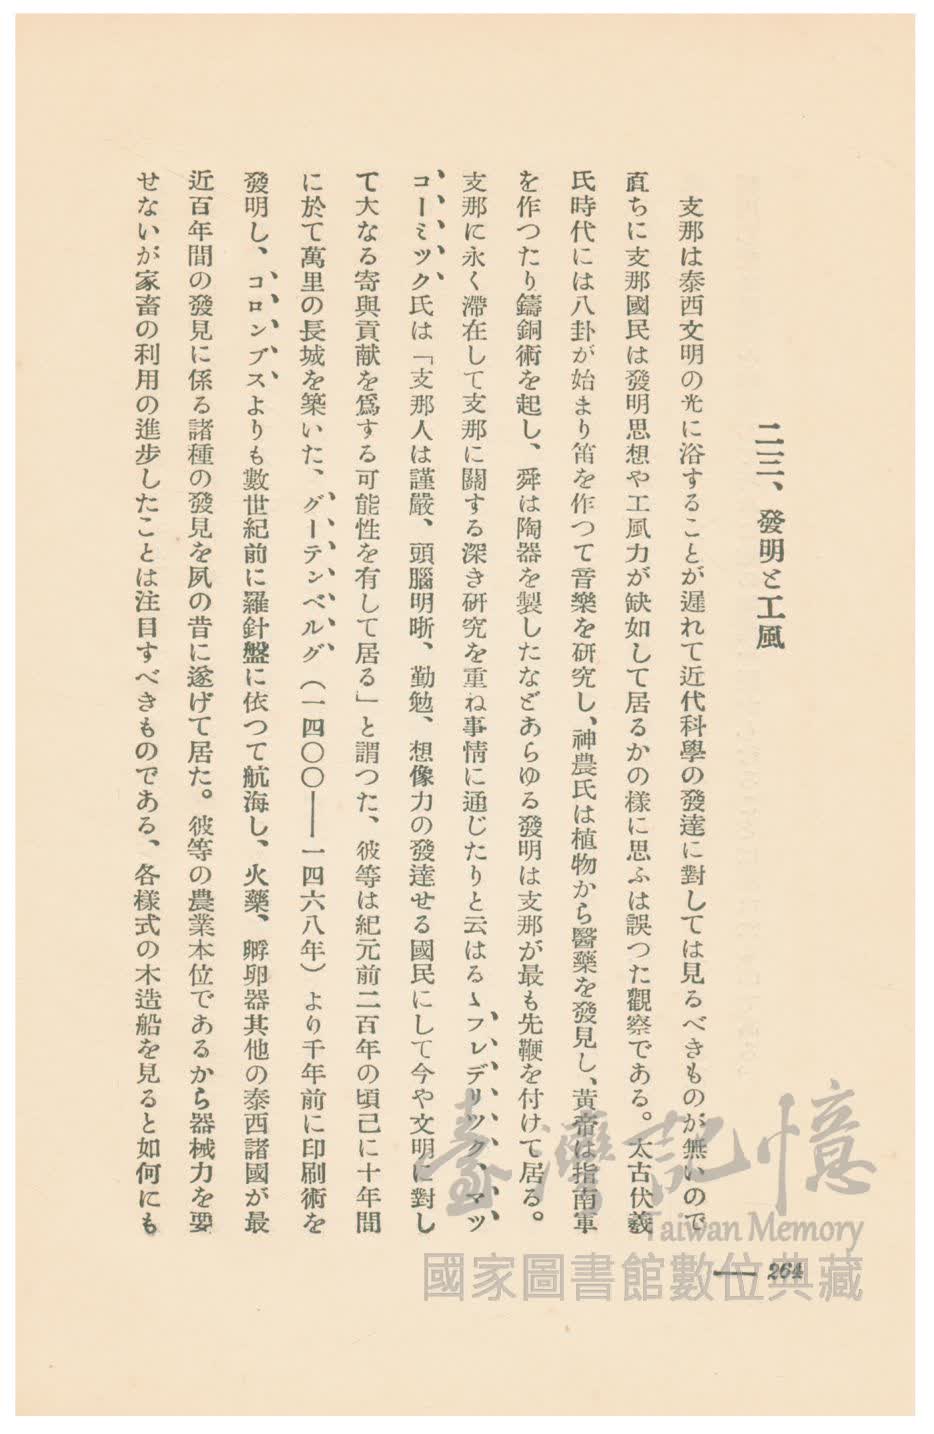 二三、發明と工風
支那は泰西文明の光に浴することが遲れて近代科學の發達に對しては見るべきものが無いので
直ちに支那國民は發明思想や工風力が缺如して居るかの樣に思ふは誤つた觀察である。太古伏羲
氏時代には八卦が始まり笛を作つて音樂を研究し、神農氏は植物から醫藥を發見し、黃帝は指南車
を作つたり鑄銅術を起し、舜は陶器を製したなどあらゆる發明は支那が最も先鞭を付けて居る。
支那に永く滯在して支那に關する深き研究を重ね事情に通じたりと云はるゝフレデリック、マッ
コーミック氏は「支那人は謹嚴、頭腦明晰、勤勉、想像力の發達せる國民にして今や文明に對し
て大なる寄與貢献を爲する可能性を有して居る」と謂つた、彼等は紀元前二百年の頃己に十年間
に於て萬里の長城を築いた、グーテンベルグ(一四〇〇——一四六八年)より千年前に印刷術を
發明し、コロンブスよりも數世紀前に羅針盤に依つて航海し、火藥、孵卵器其他の泰西諸國が最
近百年間の發見に係る諸種の發見を夙の昔に遂げて居た。彼等の農業本位であるから器械力を要
せないが家畜の利用の進步したことは注目すべきものである、各樣式の木造船を見ると如何にも
— 264
臺灣記憶
Taiwan Memory
國家圖書館數位典藏